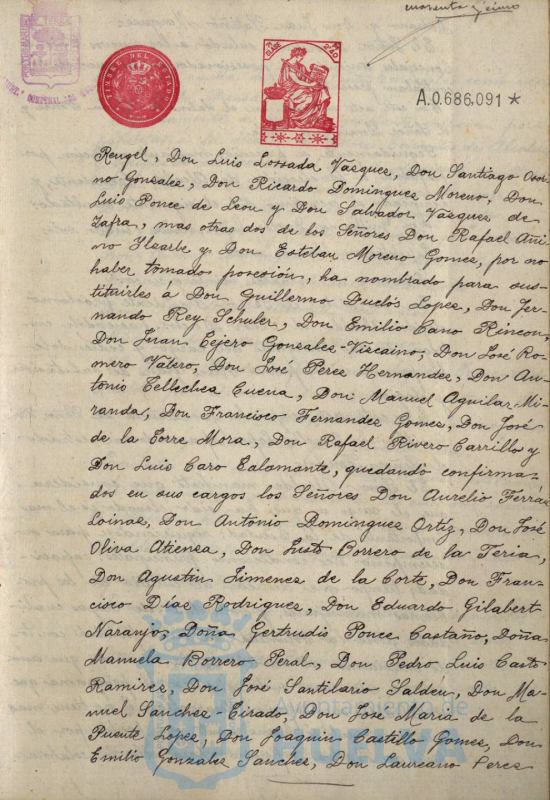 noventa y cinco
TIMBRE DEL ESTADO
A.0.686,091 *
Rengel, Don Luis Lossada Vasquez, Don Santiago Osor-
no Gonzalez, Don Ricardo Dominguez Moreno, Don
Luis Ponce de Leon y Don Salvador Vasquez de
Zafra, mas otras dos de los Señores Don Rafael Ani-
no Ylzarbe y Don Esteban Moreno Gomez, por no
haber tomados posesión, ha nombrado para sus-
tituirles á Don Guillermo Duclós Lopez, Don Fer-
nando Rey Schuler, Don Emilio Cano Rincon,
Don Juan Tejero Gonzalez-Viscaino, Don José Ro-
mero Valero, Don José Perez Hernandez, Don An-
tonio Tellechea Cuena, Don Manuel Aguilar Mi-
randa, Don Francisco Fernandez Gomez, Don José
de la Torre Mora, Don Rafael Rivero Carrillo y
Don Luis Caro Talamante, quedando confirma-
dos en sus cargos los Señores Don Aurelio Férrà
Loinaz, Don Antonio Dominguez Ortíz, Don José
Oliva Atienza, Don Justo Borrero de la Feria,
Don Agustin Jimenez de la Corte, Don Fran-
cisco Díaz Rodriguez, Don Eduardo Gilabert
Naranjo, Doña Gertrudis Ponce Castaño, Doña
Manuela Borrero Peral, Don Pedro Luis Casto
Ramirez, Don José Santilario Saldeu, Don Ma-
nuel Sanchez-Tirado, Don Jose Maria de la
Puente Lopez, Don Joaquin Castillo Gomez, Don
Emilio Gonzalez Sanchez, Don Laureano Perez
Ayuntamiento de
HUELVA